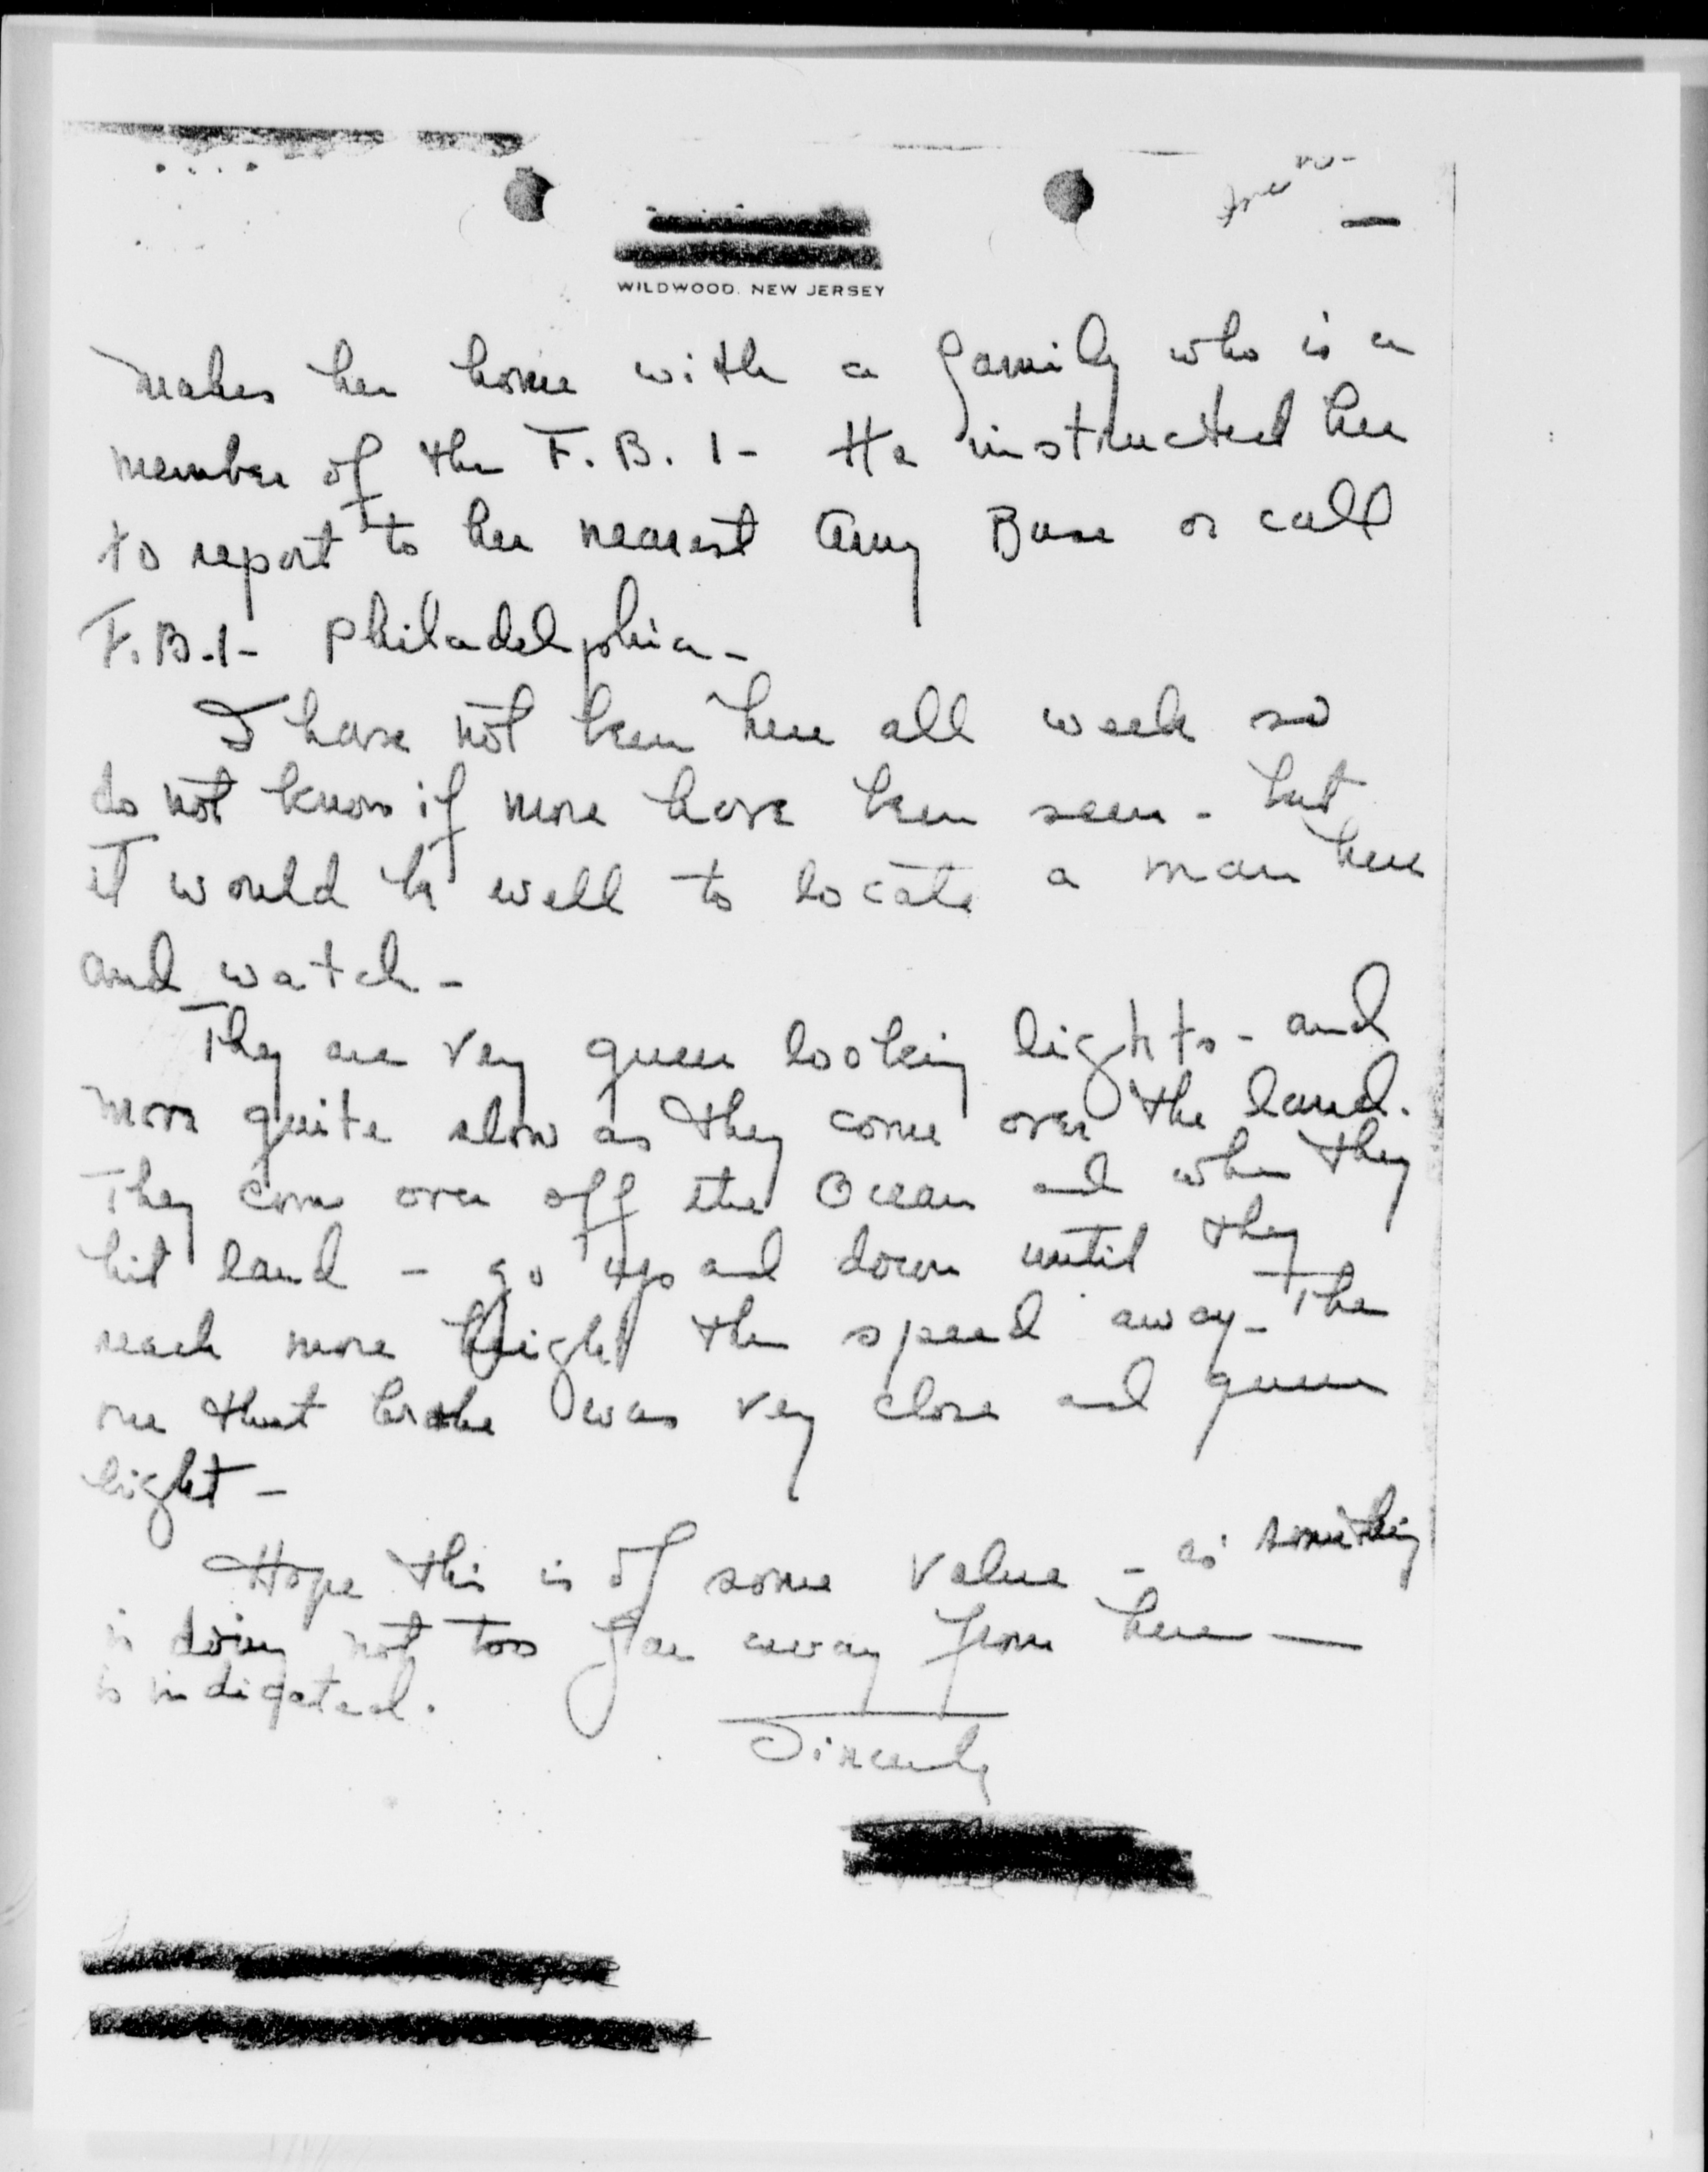 WILDWOOD, NEW JERSEY
makes her home with a family who is a
member of the F.B.I- He instructed her
to report to her nearest Army Base or call
F.B.I- Philadelphia-
I have not been here all week so
do not know if more have been seen - but
it would be well to locate a man here
and watch-
They are very queer looking lights - and
move quite slow as they come over the land.
They come over off the Ocean and when they
hit land - go up and down until they
reach more height then speed away- The
one that broke was very close and queer
light-
Hope this is of some value - as something
is doing not too far away from here —
is indicated.
Sincerely